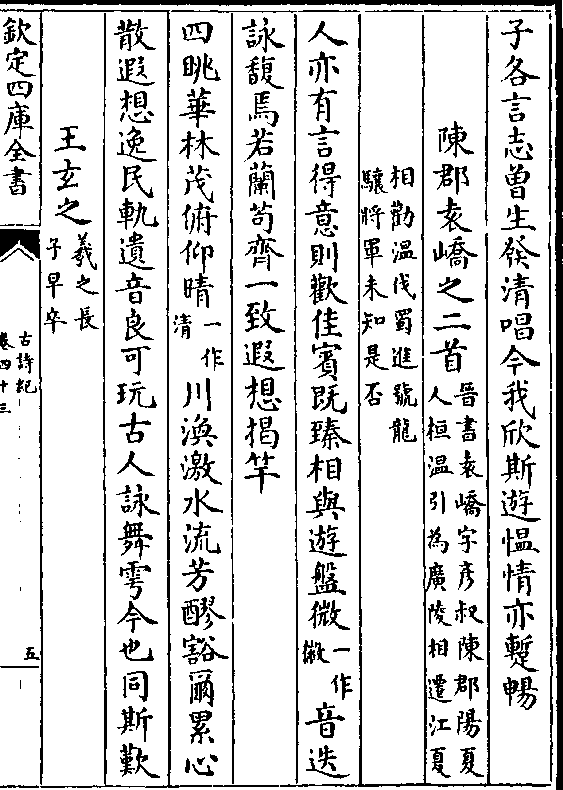 子各言志曽生發清唱今我欣斯遊愠情亦蹔暢
陳郡袁嶠之二首
晉書袁嶠字彦叔陳郡陽夏
人桓温引為廣陵相遷江夏
相勸温伐蜀進號龍
驤將軍未知是否
人亦有言得意則歡佳賓既臻相與遊盤微一作㣲音迭
詠馥焉若蘭苟齊一致遐想揭竿
四眺華林茂俯仰晴一作清川渙激水流芳醪豁爾累心
散遐想逸民軌遺音良可玩古人詠舞雩今也同斯歎
王玄之
羲之長
子早卒
欽定四庫全書
古詩紀
卷四十三
五